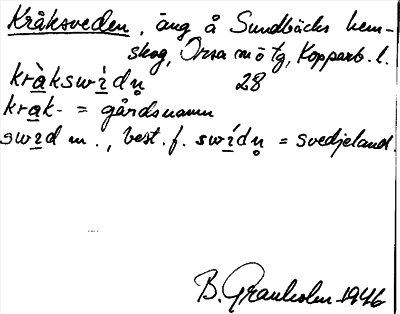 Kråksveden, äng å Sundbäcks hem-
skog, Orsa mö tg, Kopparb. l.
kràkswìdṇ 28
krak- = gårdsnamn
swid m., best. f. swídṇ = svedjeland.
B. Granholm 1946